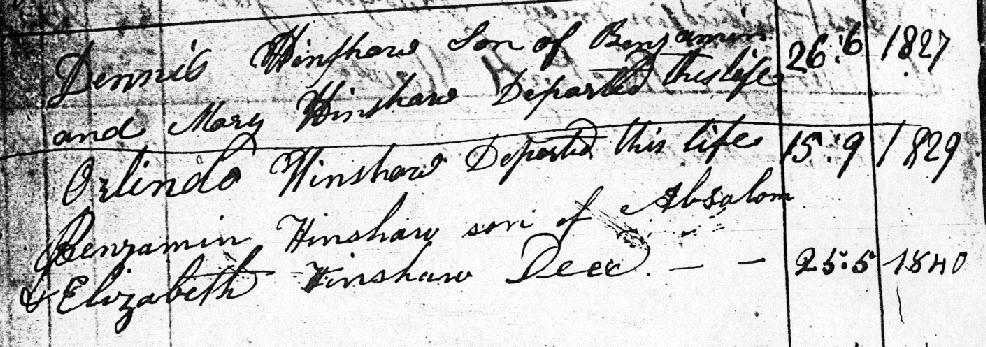 Dennis Hinshaw Son of Benjamin 26:6 1827
and Mary Hinshaw Departed this life
Orlindo Hinshaw Departed this life 15:9 1829
Benjamin Hinshaw son of Absalom
& Elizabeth Hinshaw Decd. - - 25:5 1840